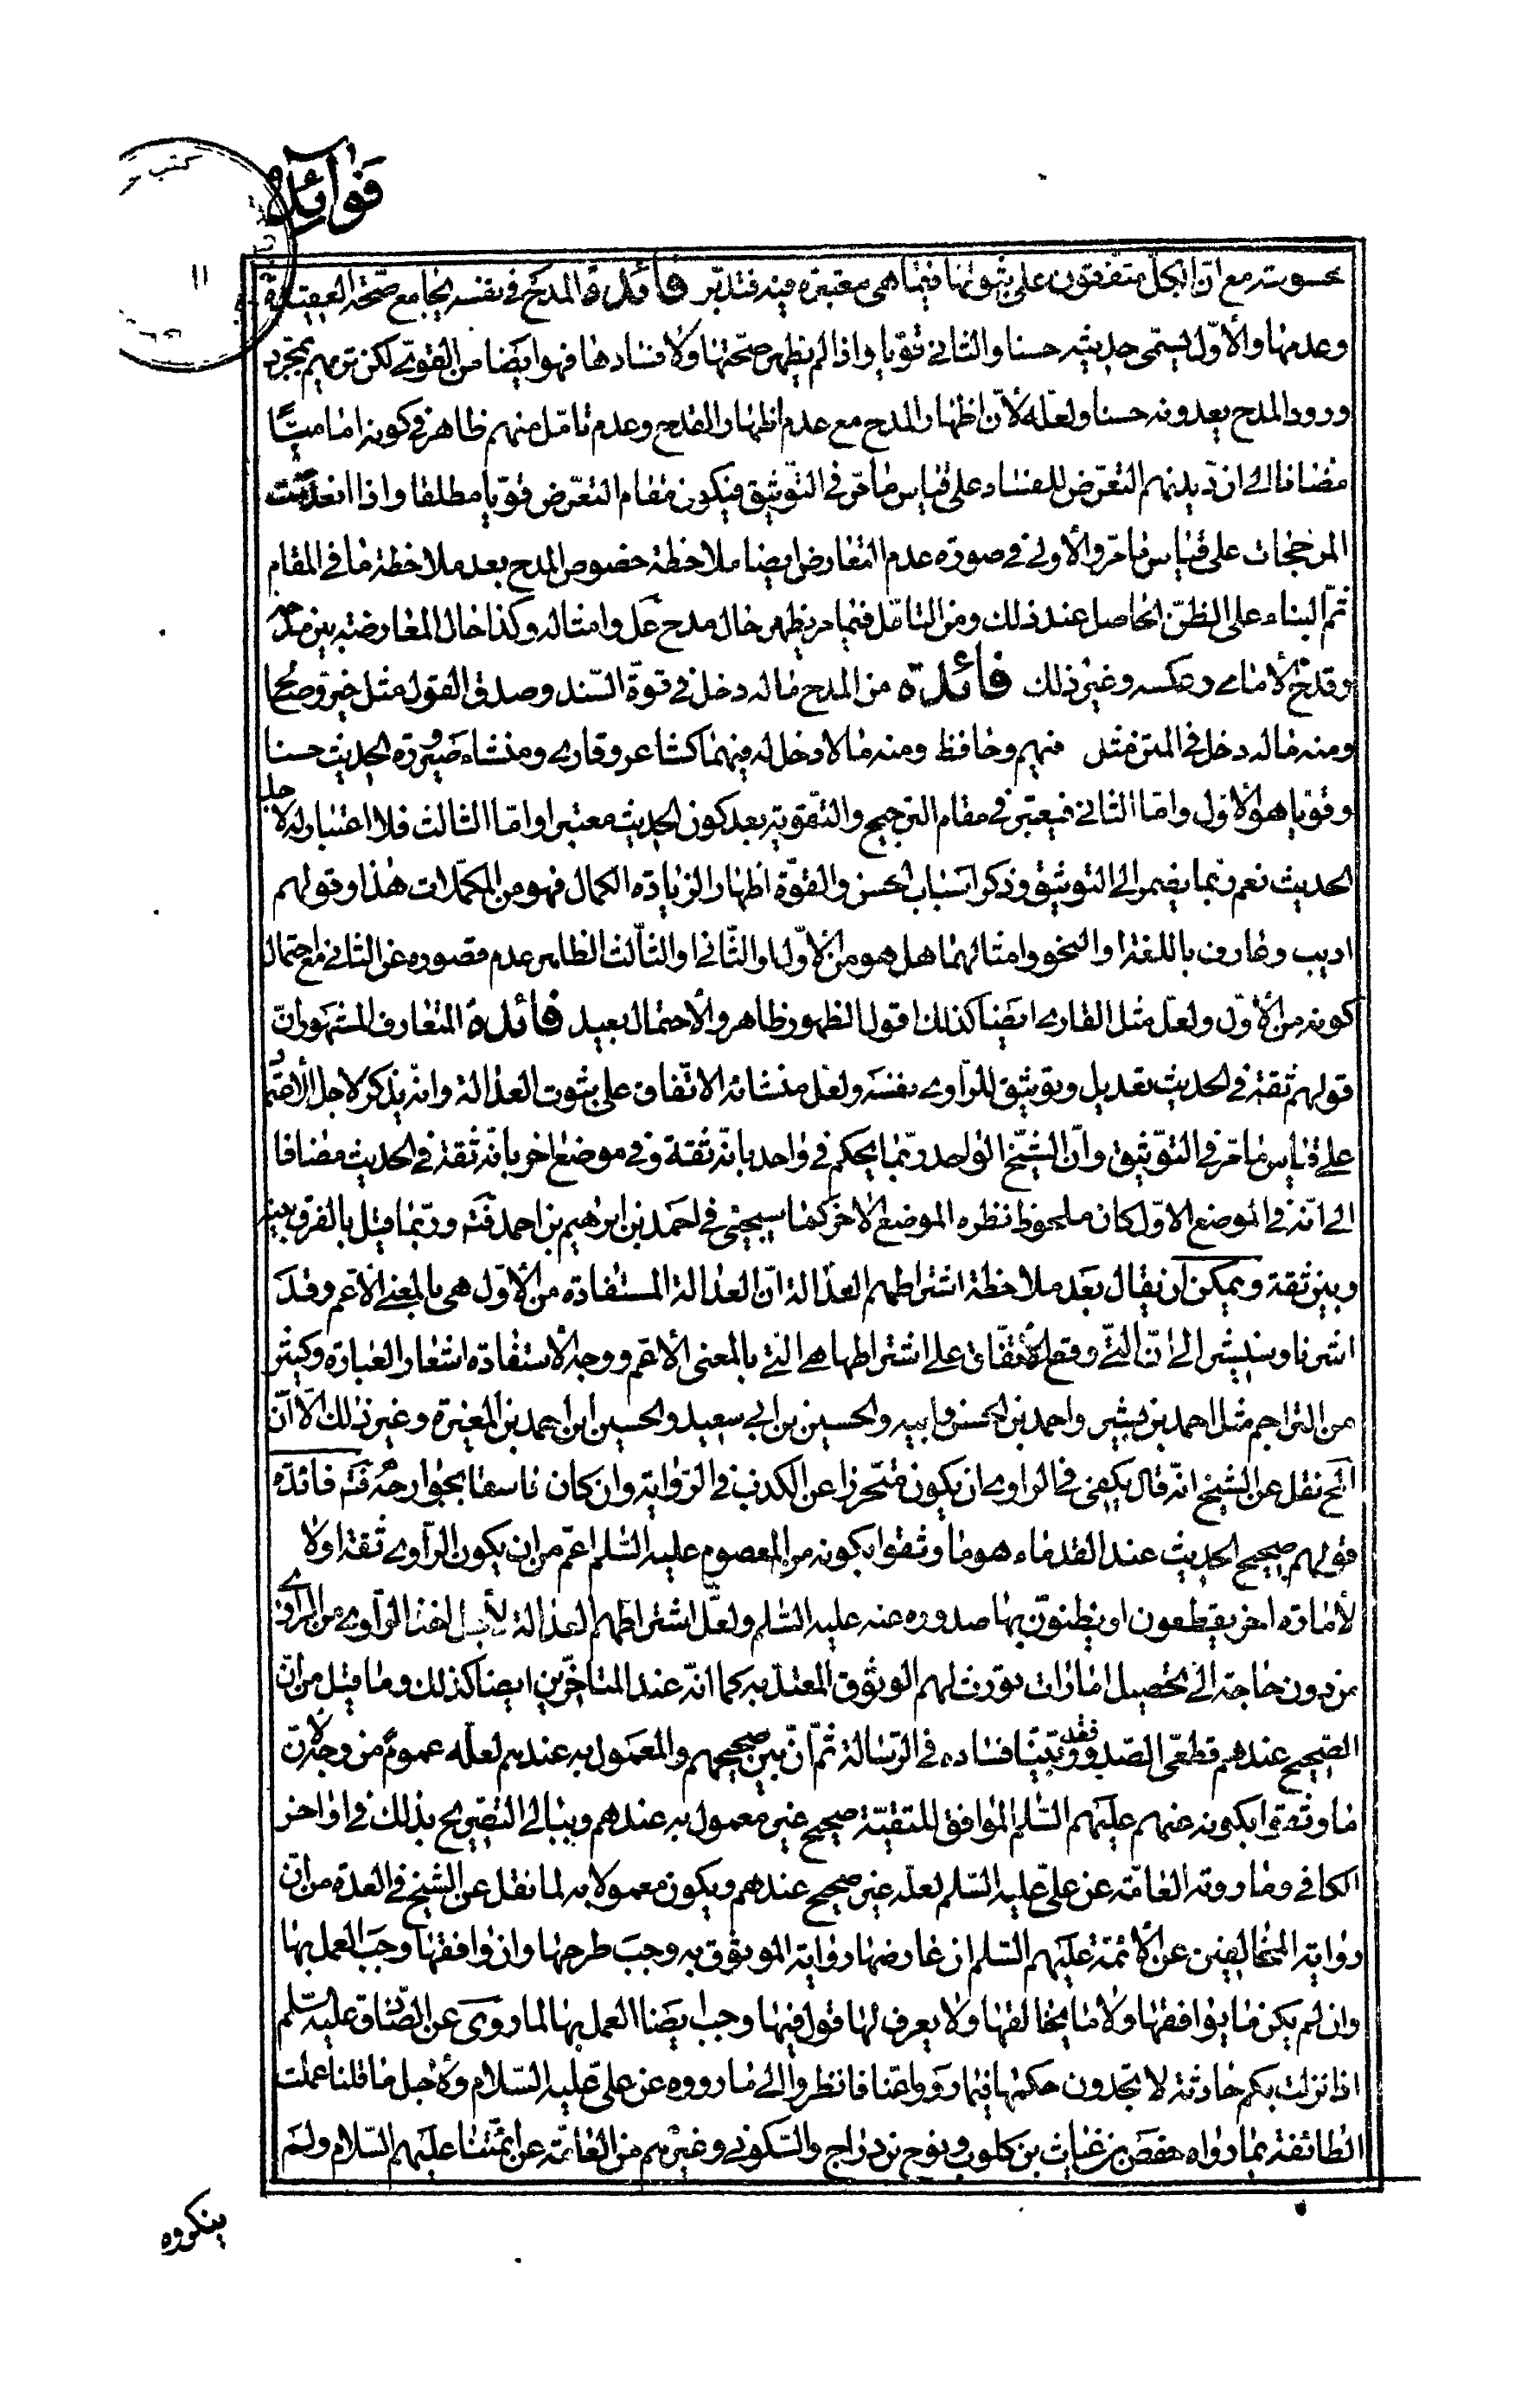 فوائد
كتب
١١
محسوسة مع ان الكل متفقون على ثبوتها فيما هى معتبرة فيه فتدبر فائدة المدح فى نفسه يجامع صحة العقيدة
وعدمها والأوّل يسمّى حديثه حسنا والثانى قويا واذا لم يظهر صحتها ولا فسادها فهو ايضا من القوى لكن نريهم بمجرد
ورود المدح يعدونه حسنا ولعله لأن اظهار المدح مع عدم اظهار القدح وعدم تأمل منهم ظاهر فى كونه اماميّا
مضافا الى ان ديدنهم التعرّض للفساد على قياس ما مرّ فى التوثيق فيكون مقام التعرّض قويا مطلقا واذا
المرجحات على قياس ما مرّ والأولى فى صورة عدم التعارض ايضا ملاحظة خصوص المدح بعد ملاحظة ما فى المقام
ثمّ البناء على الظنّ الحاصل عند ذلك ومن التأمّل فيما مر يظهر حال مدح عل وامثاله وكذا حال المعارضة بين مدح
وقدح الامامى وعكسه وغير ذلك فائدة من المدح ما له دخل فى قوة السّند وصدق القول مثل خيّر وصالح
ومنه ما له دخل فى المتن مثل فهيم وحافظ ومنه ما لا دخل له فيهما كشاعر وقارى ومنشاء صيرورة الحديث حسنا
وقويا هو الأوّل وامّا الثانى فيعتبر فى مقام الترجيح والتقوية بعد كون الحديث معتبرا وامّا الثالث فلا اعتبار له لاجل
الحديث نعم ربما يضم الى التوثيق وذكر اسباب الحسن والقوّة اظهارا لزيادة الكمال فهو من المكمّلات هذا وقولهم
اديب وعارف باللغة او النحو وامثالهما هل هو من الأوّل او الثّانى او الثّالث الظاهر عدم قصوره عن الثانى مع احتمال
كونه من الأوّل ولعلّ مثل القارى ايضا كذلك اقول الظهور ظاهر والاحتمال بعيد فائدة المتعارف المشهور ان
قولهم ثقة فى الحديث تعديل وتوثيق للرّاوى نفسه ولعل منشائه الاتّفاق على ثبوت العدالة وانه يذكر لاجل الاعتماد
على قياس ما مرّ فى التوثيق وانّ الشيخ الواحد ربّما يحكم فى واحد بانّه ثقة وفى موضع اخر بانّه ثقة فى الحديث مضافا
الى انّه فى الموضع الاوّل كان ملحوظ نظره الموضع الاخر كما سيجئ فى احمد بن ابرهيم بن احمد فته وربّما قيل بالفرق بينه
وبين ثقة ويمكن ان يقال بعد ملاحظة اشتراطهم العدالة انّ العدالة المستفادة من الأوّل هى بالمعنى الاعم وقد
اشرنا وسنشير الى انّ التى وقع الاتّفاق على اشتراطها هى التى بالمعنى الاعم ووجه الاستفادة اشعار العبارة وكثير
من التراجم مثل احمد بن بشير واحمد بن الحسن وابيه والحسين بن ابى سعيد والحسين ابن احمد بن المغيرة وغير ذلك الا انّ
المح نقل عن الشيخ انّه قال يكفى فى الراوى ان يكون متحرزا عن الكذب فى الرّواية وان كان فاسقا بجوارحه فته فائدة
قولهم صحيح الحديث عند القدماء هو ما وثقوا بكونه من المعصوم عليه السّلم اعمّ من ان يكون الرّاوى ثقة او لا
لأمارة اخر يقطعون او يظنّون بها صدوره عنه عليه السّلم ولعلّ اشتراطهم العدالة لأجل اخذ الرّاوى من الراوى
من دون حاجة الى تحصيل امارات تورث لهم الوثوق المعتدّ به كما انّه عند المتأخّرين ايضا كذلك وما قيل من انّ
الصّحيح عندهم قطعىّ الصّدور فقد بيّنا فساده فى الرّسالة ثمّ انّ بين صحيحهم والمعمول به عندهم لعلّه عموم من وجه لانّ
ما وثقوا بكونه عنهم عليهم السّلم الموافق للتقيّة صحيح غير معمول به عندهم وببالى التصريح بذلك فى اواخر
الكافى وما روته العامّة عن علىّ عليه السّلم لعلّه غير صحيح عندهم ويكون معمولا به لما نقل عن الشيخ فى العدة من انّ
رواية المخالفين عن الأئمّة عليهم السّلم ان عارضها رواية الموثوق به وجب طرحها وان وافقها وجب العمل بها
وان لم يكن ما يوافقها ولا ما يخالفها ولا يعرف لها قول فيها وجب ايضا العمل بها لما روى عن الصّادق عليه السّلم
اذا نزلت بكم حادثة لا تجدون حكمها فيما رووا عنّا فانظروا الى ما رووه عن علىّ عليه السّلام ولأجل ما قلنا عملت
الطائفة بما رواه حفص بن غياث بن كلوب ونوح بن دراج والسّكونى وغيرهم من العامّة عن ائمّتنا عليهم السّلام ولم
ينكروه